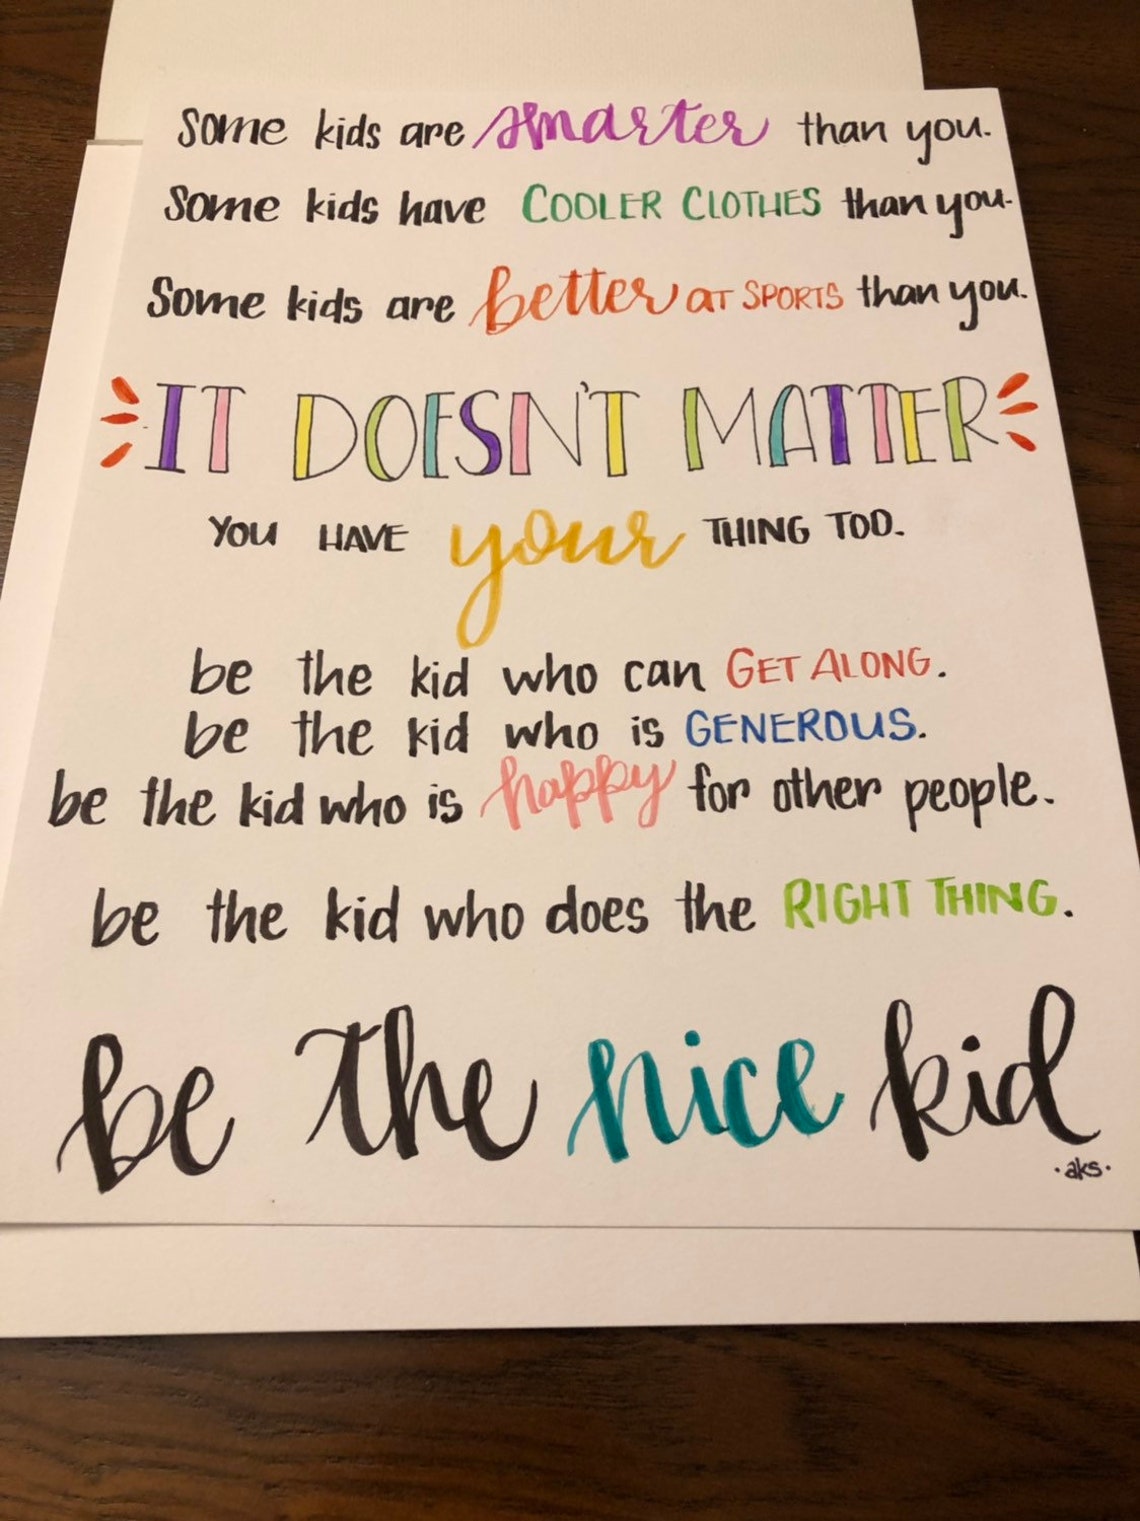 Some kids are smarter than you.
Some kids have COOLER CLOTHES than you.
Some kids are better AT SPORTS than you.
IT DOESN'T MATTER
YOU HAVE your THING TOO.
be the kid who can GET ALONG.
be the kid who is GENEROUS.
be the kid who is happy for other people.
be the kid who does the RIGHT THING.
be the nice kid
·aks·